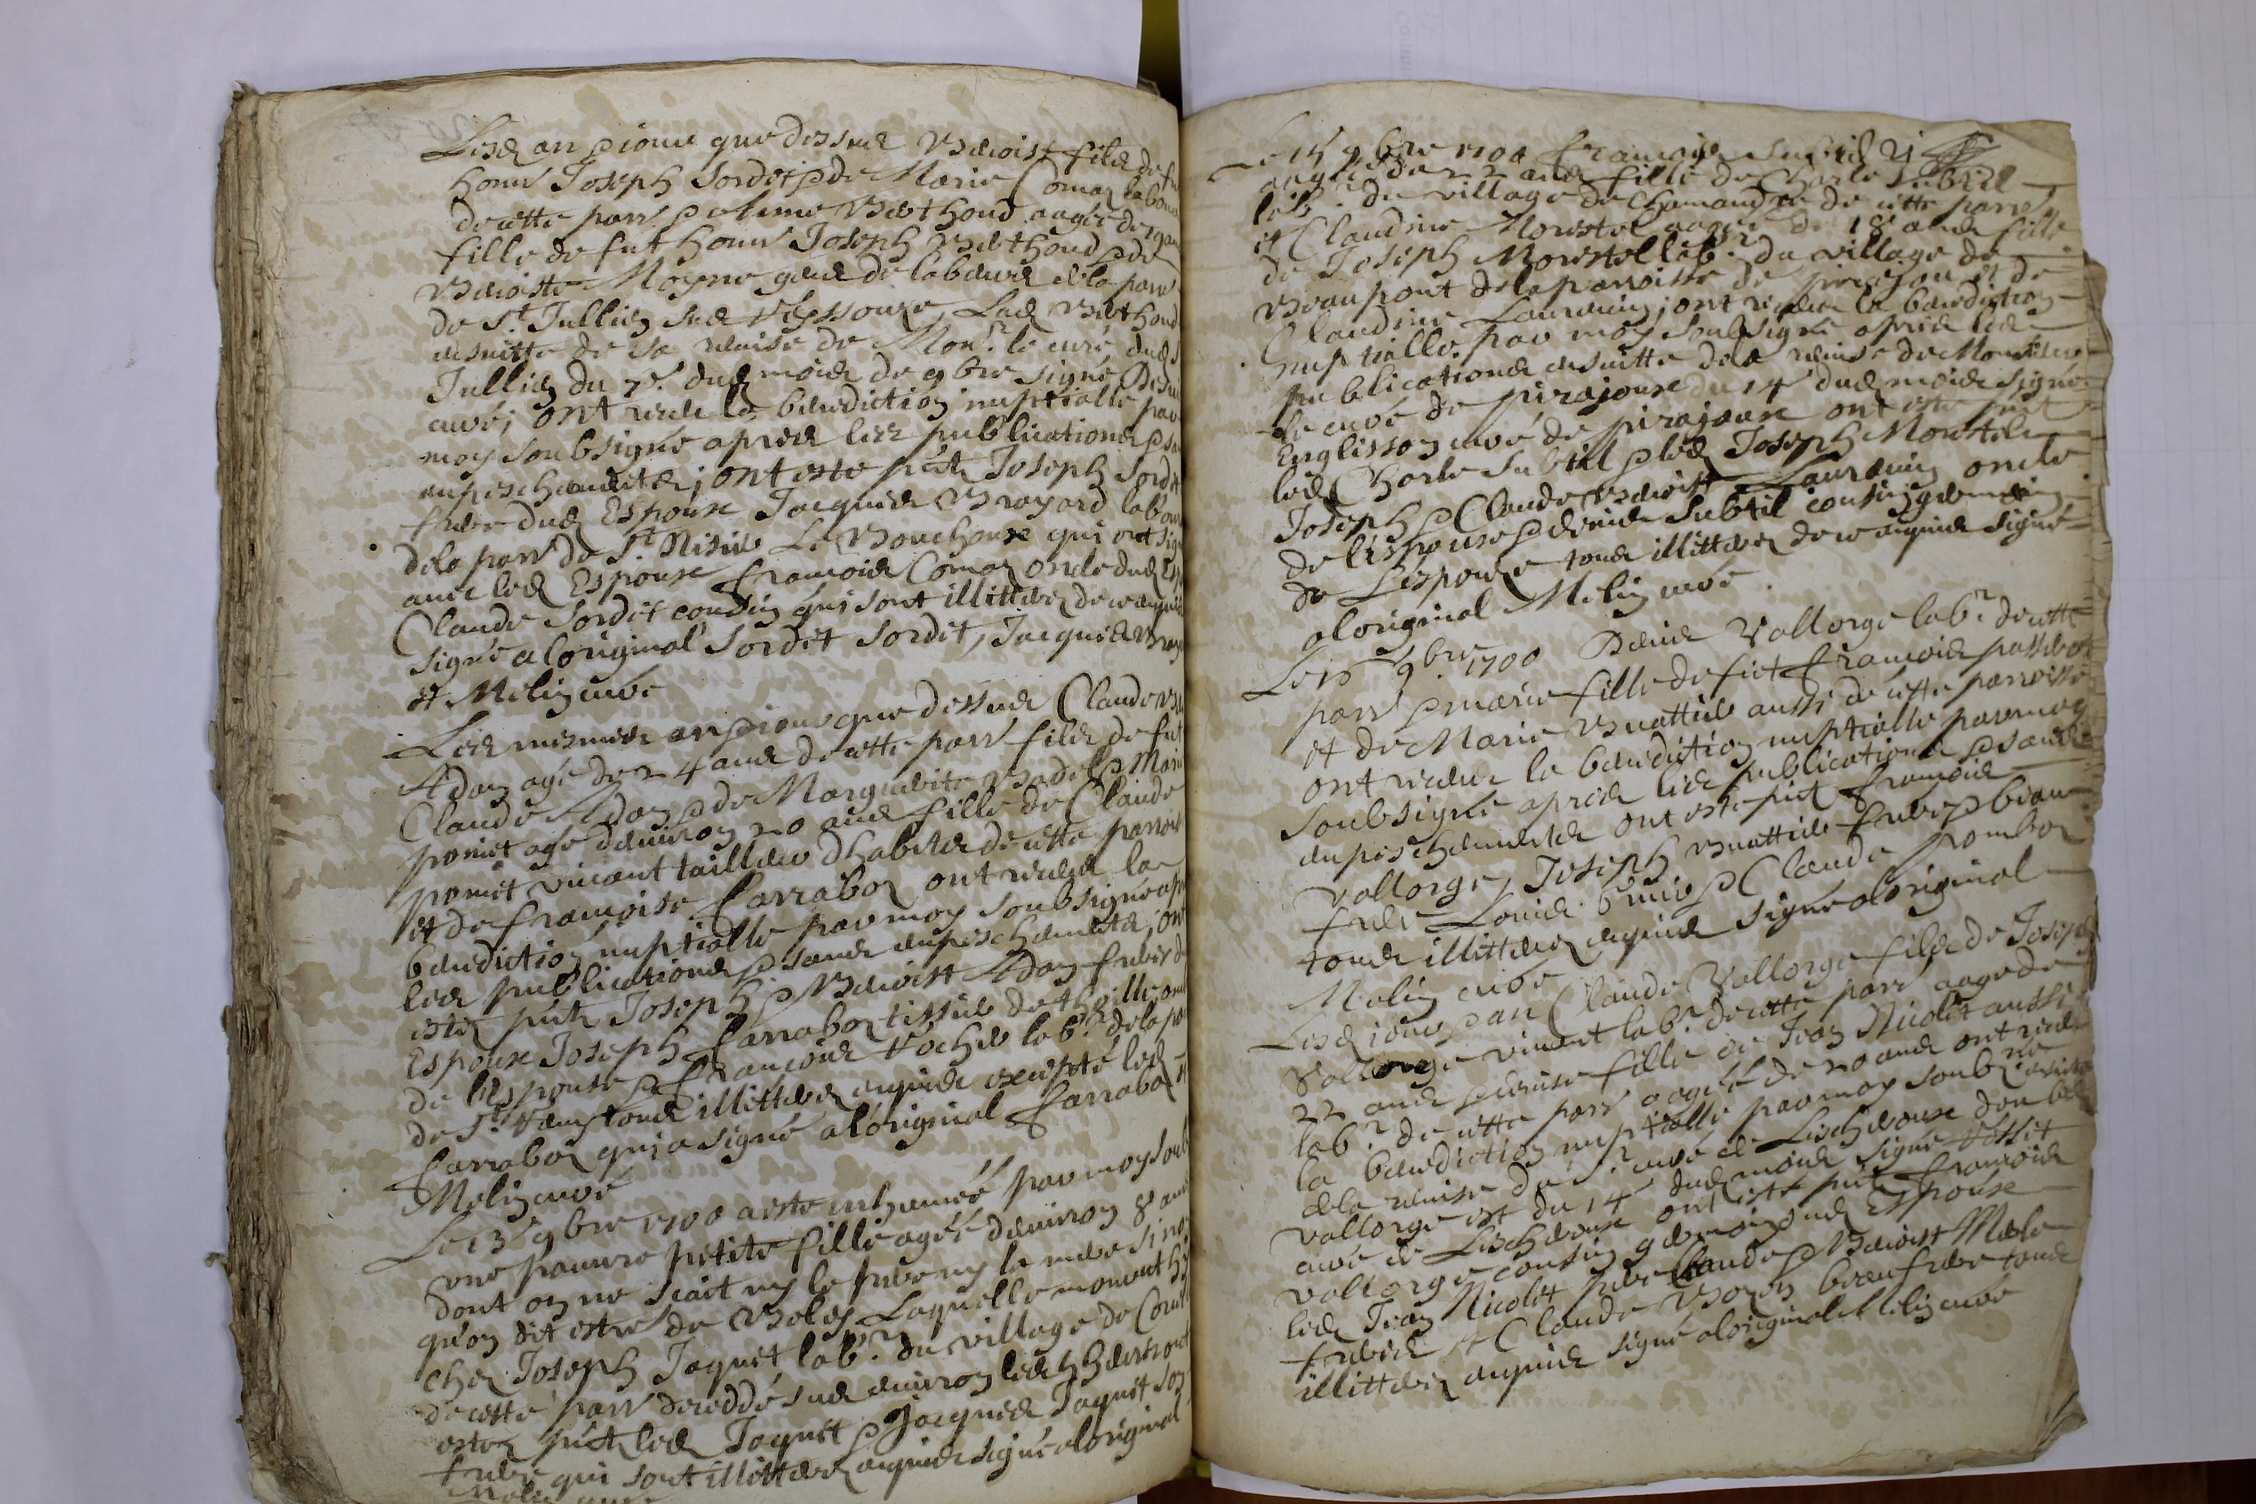 Lesd an et jour que dessus Benoist fils de fut
honn Joseph Sordet et de Marie Comaz labour
de cette parr et Berthoud aagée de 19 an
fille de fut honn Joseph Berthoud et de
Benoitte Moyne gens de labeurs de la parr
de St Jullien sur Reyssouze, Lad Berthoud
ensuitte de sa remise de Monr le curé dud St
Jullien du 7e dud mois de 9bre signé
curé; ont receu la benediction nuptialle par
moy soubsigné apres les publications et sans
empeschements; ont este pñts Joseph Sordet
frere dud Espoux Jacques Brayard labour
de la parr de St Nisier Le Bouchoux qui ont signé
avec led Espoux francois Comaz oncle dud Esp
Claude Sordet cousin qui sont illitterez de ce enquis
signé a loriginal Sordet Sordet, Jacques Bray
et Melin curé
Les mesmes an et jour que dessus Claude
Adam agé de 24 ans de cette parr fils de fut
Claude Adam et de Marguerite Badel et Marie
poncet agé denviron 20 ans fille de Claude
poncet vivant tailleur dhabits de cette parroisse
et de francoise Carrabor ont receu la
benediction nuptialle par moy soubsigné apres
les publications et sans empeschements; ont
estez pñts Joseph et Benoist Adam freres de
Espoux Joseph Carrabor tissier de thoille oncle
de lespouse et francois Vocher labr de la parr
de St tous illitterez enquis excepté led
Carrabor qui a signé a loriginal Carrabor et
Melin curé
Le 13e 9bre 1700 a este inhumée par moy soub
une pauvre petite fille agée denviron 8 ans
dont on ne scait ny le pere ny la mere sinon
quon dit estre de Laquelle mourut hier
chez Joseph Jaquet labr du village de
de cette parr decedé sur environ les heures ont
estez pñts led Jaquet et Jacques Jaquet son
frere qui sont illitterez enquis signé a loriginal
Melin curé
Le 15 9bre 1700 francois Subtil
aagé de 22 ans fils de Charle Subtil
labr du village de Chamandre de cette parr
et Claudine Morestel aagée de 18 ans fille
de Joseph Morestel labr du village de
Beaupont de la parroisse de pirajou et de
Claudine Laurencin; ont receu la benediction
nuptialle par moy soubsigné apres les
publications ensuitte de la remise de Monsieur
le curé de pirajoux du 14 dud mois signé
Englisson curé de pirajoux ont este pñt
led Charle Subtil et led Joseph Morestel
Joseph et Claude Benoist Laurencin oncle
de lespouse et denis Subtil cousin germain
de Lespouze tous illitterez de ce enquis signé
a loriginal Melin curé
Le 15 9bre 1700 Denis Vallorge labr de cette
parr et marie fille de fut francois passerot
et de Marie Buattier aussi de cette parroisse
ont receu la benediction nuptialle par moy
soubsigné apres les publications et sans
empeschements ont este pñt francois
vallorge, Joseph Buattier freres et beau
frere Louis et Claude
tous illitterez enquis signé a loriginal
Melin curé
Lesd jour et an Claude Vallorge fils de Joseph
vallorge vivant labr de cette parr aagé de
22 ans et denise fille de Jean Nicolet aussi
labr de cette parr aagée de 20 ans ont receu
la benediction nuptialle par moy soubné ensuite
de la remise du sr curé de Lescheroux dou led
vallorge est du 14 dud mois signé
curé de Lescheroux ont este pñt francois
vallorge cousin germain dud Espoux
led Jean Nicolet pere Claude et Benoist
freres et Claude beau frere tous
illitterez enquis signé a loriginal Melin curé